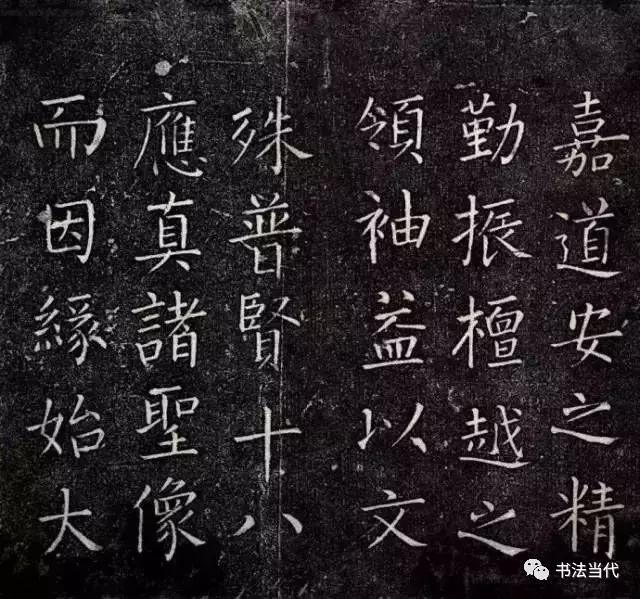 嘉道安之精
勤振檀越之
領袖益以文
殊普賢十八
應真諸聖像
而因緣始大
书法当代